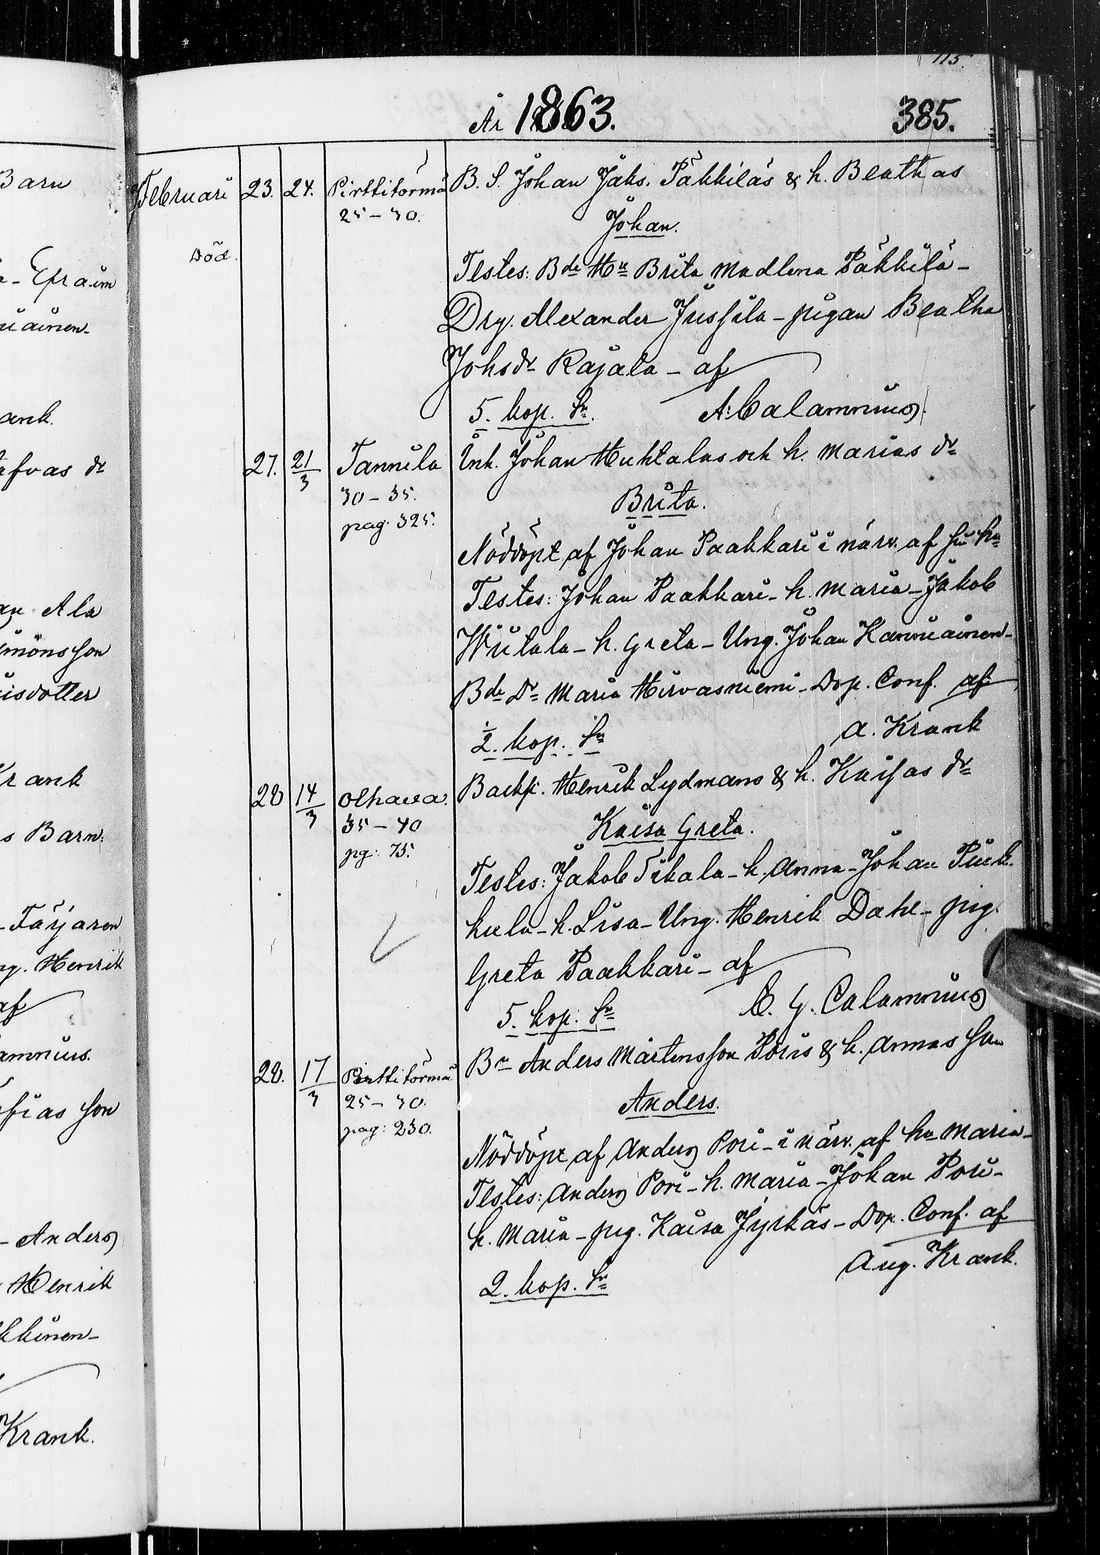 113.
År 1863.
385.
Februari 23. 24. Pirttitörmä B. S. Johan Jaks. Pakkilas & h. Beathas
25–30.
Johan.
Död.
Testes: Bde Hu Brita Madlena Pakkila–
Drg. Alexander Jussila – pigan Beatha
Johsdr Rajala – af
5. kop. Sr. A: Calamnius.
27. 21/3 Tannila Inh. Johan Huhtalas och h. Marias dr
30–35. Brita.
pag. 325.
Nöddöpt af Johan Paakkari i närv. af
Testes: Johan Paakkari – h. Maria – Jakob
Wiitala – h. Greta – Ung. Johan
Bde Dr Maria Hirvasniemi – Dop. Conf. af
2. kop. Sr A. Krank
28 14/3 Olhava. Backst. Henrik Lydmans & h. Kaisas dr
35–40 Kaisa Greta.
pg: 75.
Testes: Jakob Tikala – h. Anna – Johan
kula – h. Lisa – Ung. Henrik Dahl – pig.
Greta Paakkari – af
5. kop. Sr C. G. Calamnius
28. 17/3 Pirttitörmä Br Anders Mårtensson Poris & h. Annas son
25–30. Anders.
pag: 230.
Nöddöpt af Anders Pori – i närv. af hu Maria–
Testes: Anders Pori – h. Maria – Johan Pori–
h. Maria – pig. Kaisa Jyrkäs – Dop. Conf. af
2. kop. Sr Aug. Krank.
Barn
Efraim
ank.
afvas dr
Ala
imonsson
isdotter
Krank
s Barn.
– Färjaren
ng. Henrik
af
amnius.
fias son
– Anders
Henrik
kkinen–
Krank.